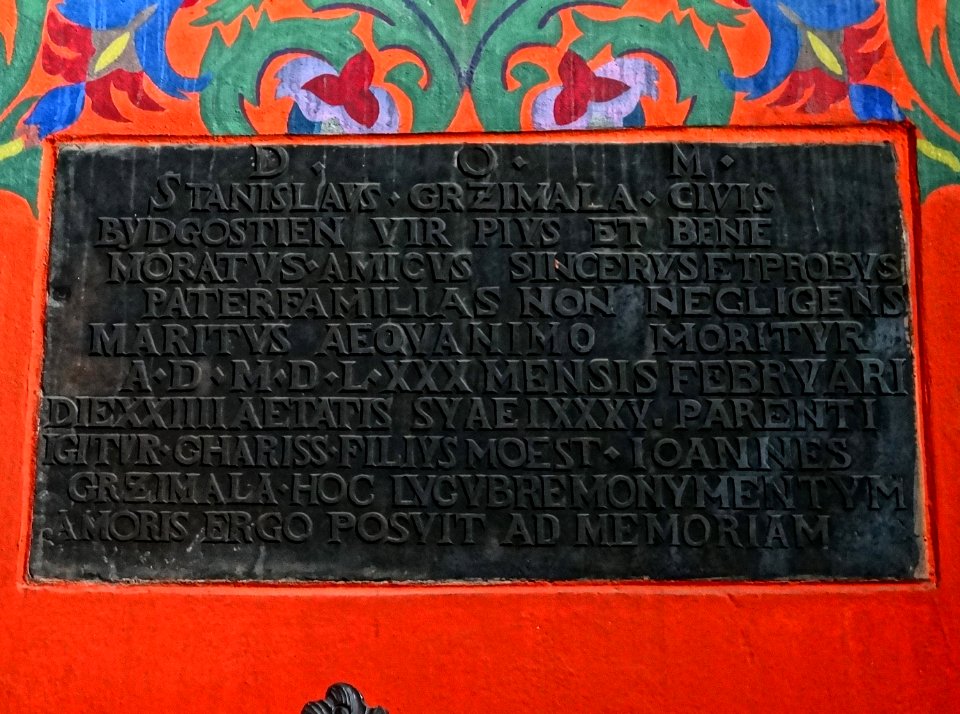 D · O · M ·
STANISLAVS · GRZIMALA · CIVIS
BVDGOSTIEN VIR PIVS ET BENE
MORATVS · AMICVS SINCERVS ET PROBVS
PATERFAMILIAS NON NEGLIGENS
MARITVS AEQVANIMO MORITVR
A · D · M · D · L · XXX MENSIS FEBRVARI
DIE XXIIII AETATIS SVAE LXXXV. PARENTI
IGITVR · CHARISS · FILIVS MOEST · IOANNES
GRZIMALA · HOC LVGVBRE MONYMENTVM
AMORIS ERGO POSVIT AD MEMORIAM